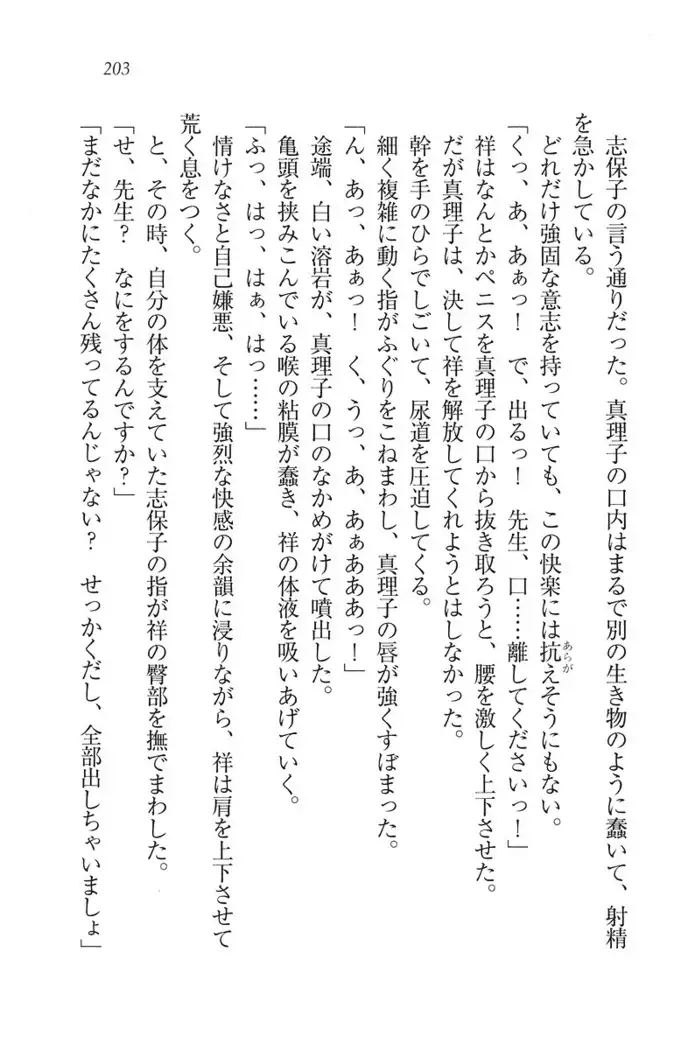 203
志保子の言う通りだった。真理子の口内はまるで別の生き物のように蠢いて、射精
を急かしている。
どれだけ強固な意志を持っていても、この快楽には抗えそうにもない。
あらが
「くっ、あ、あぁっ！　で、出るっ！　先生、口……離してくださいっ！」
祥はなんとかペニスを真理子の口から抜き取ろうと、腰を激しく上下させた。
だが真理子は、決して祥を解放してくれようとはしなかった。
幹を手のひらでしごいて、尿道を圧迫してくる。
細く複雑に動く指がふぐりをこねまわし、真理子の唇が強くすぼまった。
「ん、あっ、あぁっ！　く、うっ、あ、あぁあああっ！」
途端、白い溶岩が、真理子の口のなかめがけて噴出した。
亀頭を挟みこんでいる喉の粘膜が蠢き、祥の体液を吸いあげていく。
「ふっ、はっ、はぁ、はっ……」
情けなさと自己嫌悪、そして強烈な快感の余韻に浸りながら、祥は肩を上下させて
荒く息をつく。
と、その時、自分の体を支えていた志保子の指が祥の臀部を撫でまわした。
「せ、先生？　なにをするんですか？」
「まだなかにたくさん残ってるんじゃない？　せっかくだし、全部出しちゃいましょ」